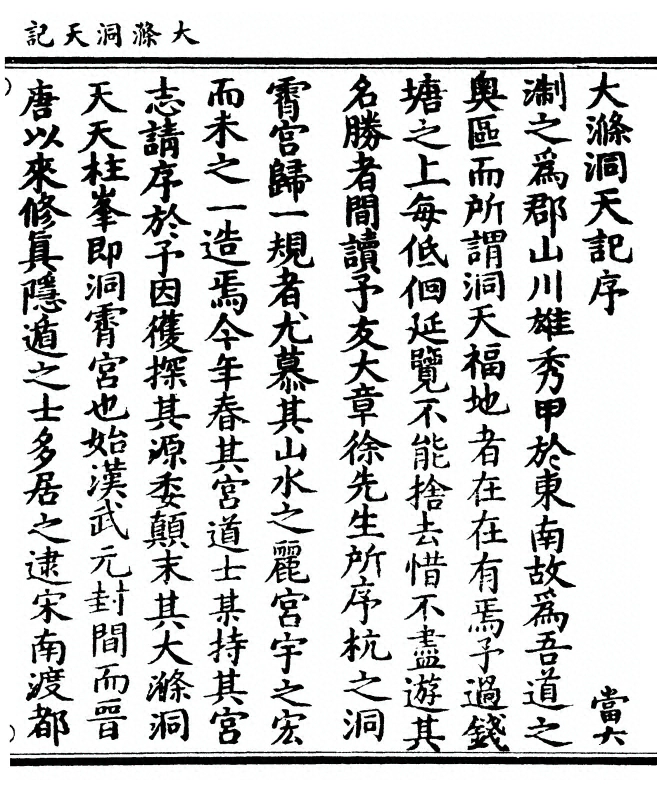 大滌洞天記
大滌洞天記序
當六
淛之爲郡山川雄秀甲於東南故爲吾道之
奥區而所謂洞天福地者在在有焉予過錢
塘之上每低佪延覽不能捨去惜不盡遊其
名勝者間讀予友大章徐先生所序杭之洞
霄宮歸一規者尤慕其山水之麗宮宇之宏
而未之一造焉今年春其宮道士某持其宮
志請序於予因獲探其源委顛末其大滌洞
天天柱峯即洞霄宮也始漢武元封間而晉
唐以來修眞隱遁之士多居之逮宋南渡都